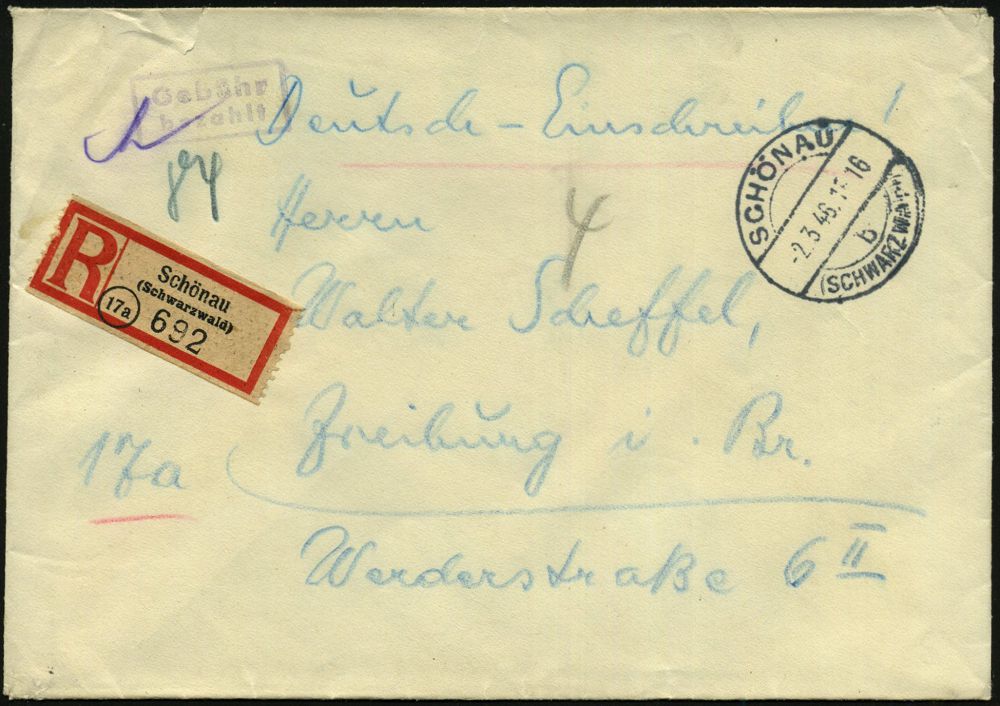 Gebühr
bezahlt
Deutsch-Einschreiben!
84
Herrn
4
SCHÖNAU
-2.3.46.15-16
b
(SCHWARZWALD)
R
Schönau
(Schwarzwald)
17a
692
Walter Scheffel,
17a
Freiburg i. Br.
Werderstraße 6 II